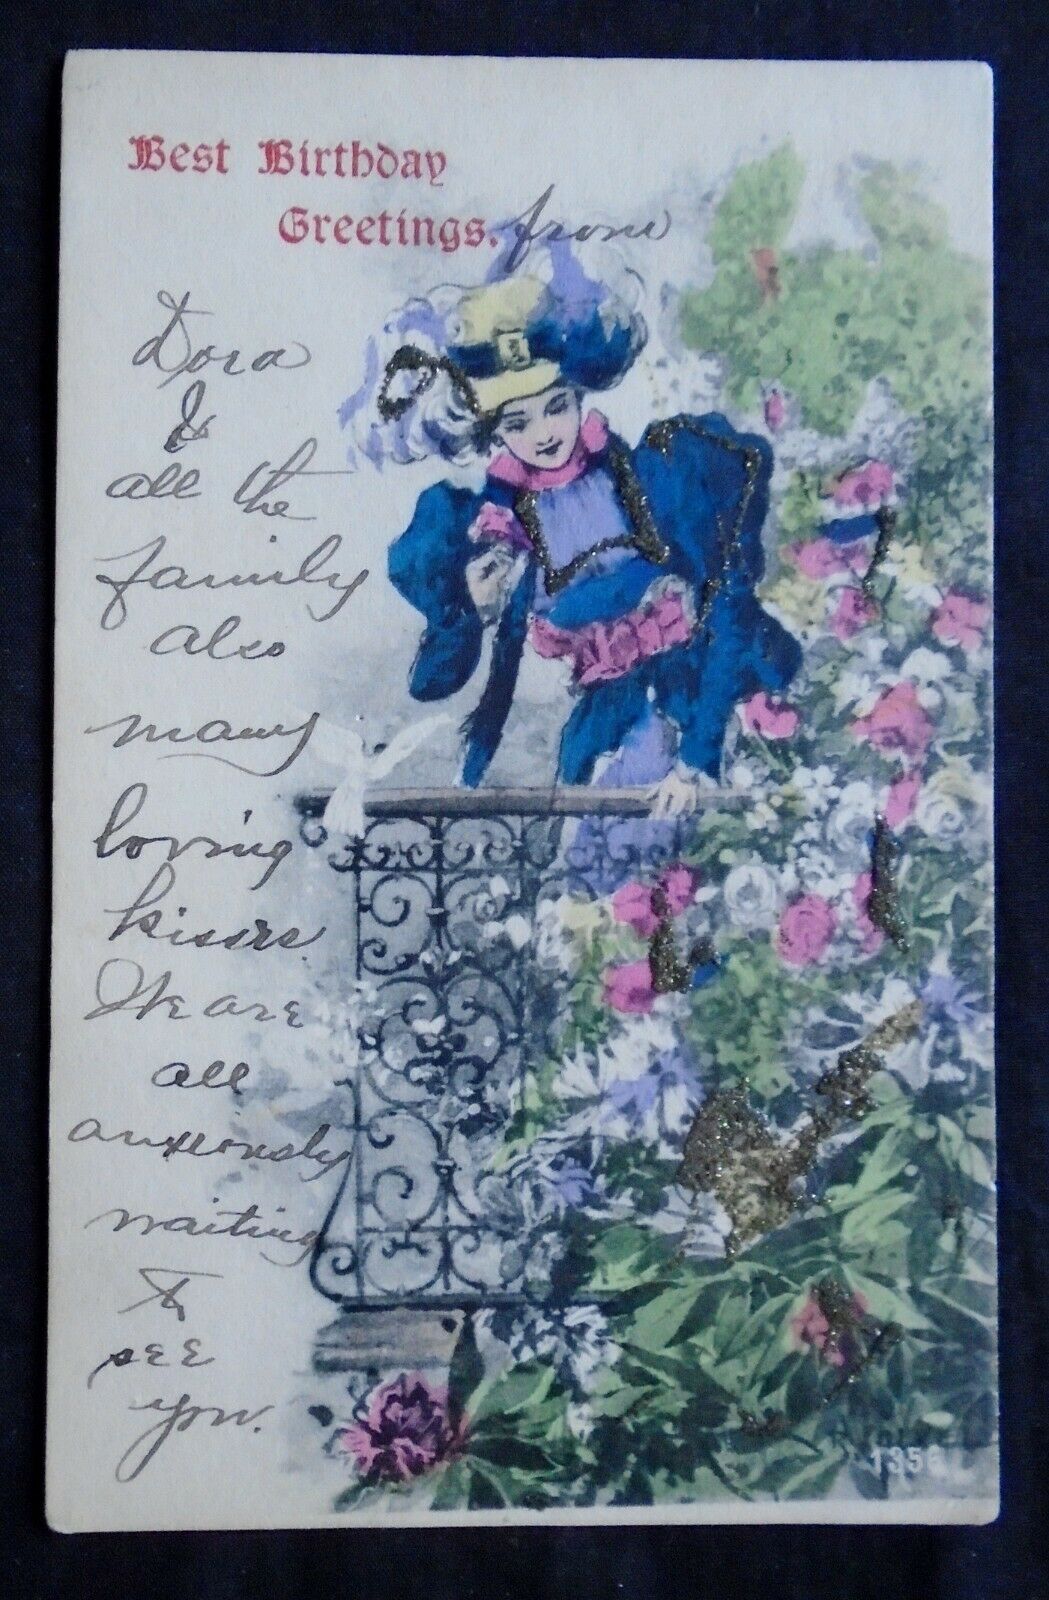 Best Birthday
Greetings. from
Dora
&
all the
family
also
many
loving
kisses.
We are
all
anxiously
waiting
to
see
you.
1356